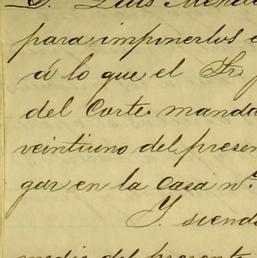 D. Luis Menda
para imponerlos e
á lo que el Sr
del Corte manda
veintiuno del presen
gar en la Casa nº
Y. siend
medio del presente